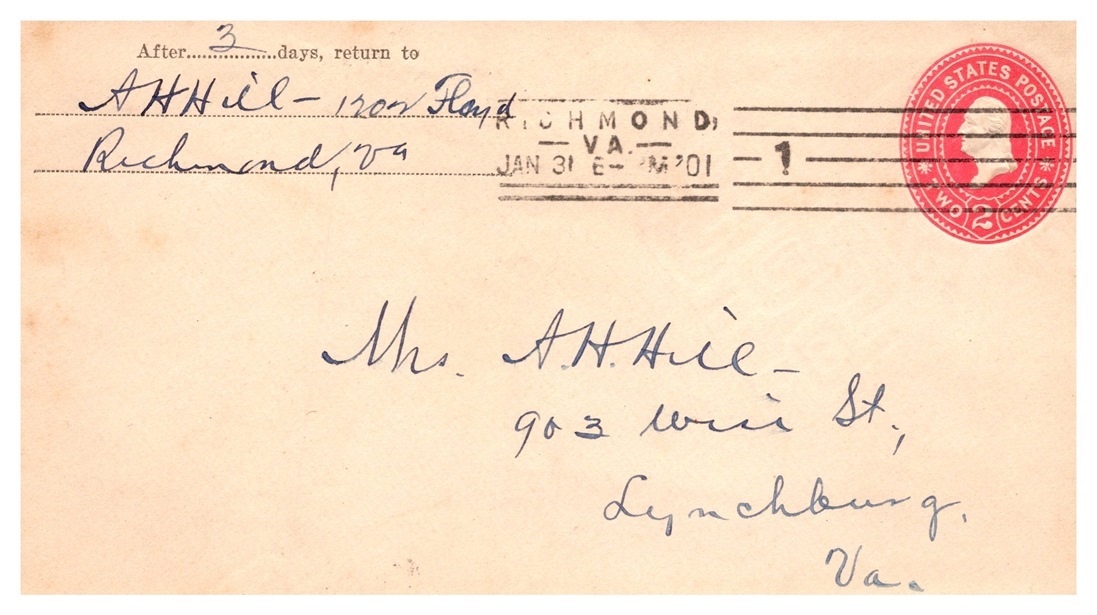 After 3 days, return to
A H Hill - 1202 Floyd
Richmond, Va
RICHMOND,
VA.
JAN 31 6- PM '01
1
UNITED STATES POSTAGE
TWO 2 CENTS
Mrs. A. H. Hill -
903 St.,
Lynchburg,
Va.